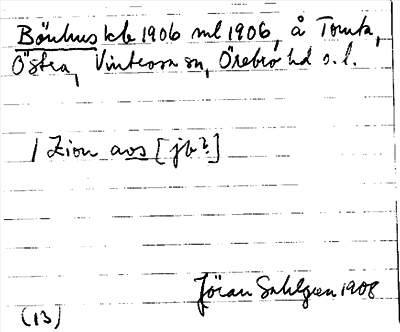 Bönhus kb 1906 ml 1906, å Tomta,
Östra, Vintrosa sn, Örebro hd s. l.
/ Zion aos [jb?]
Jöran Sahlgren 1908
(13)